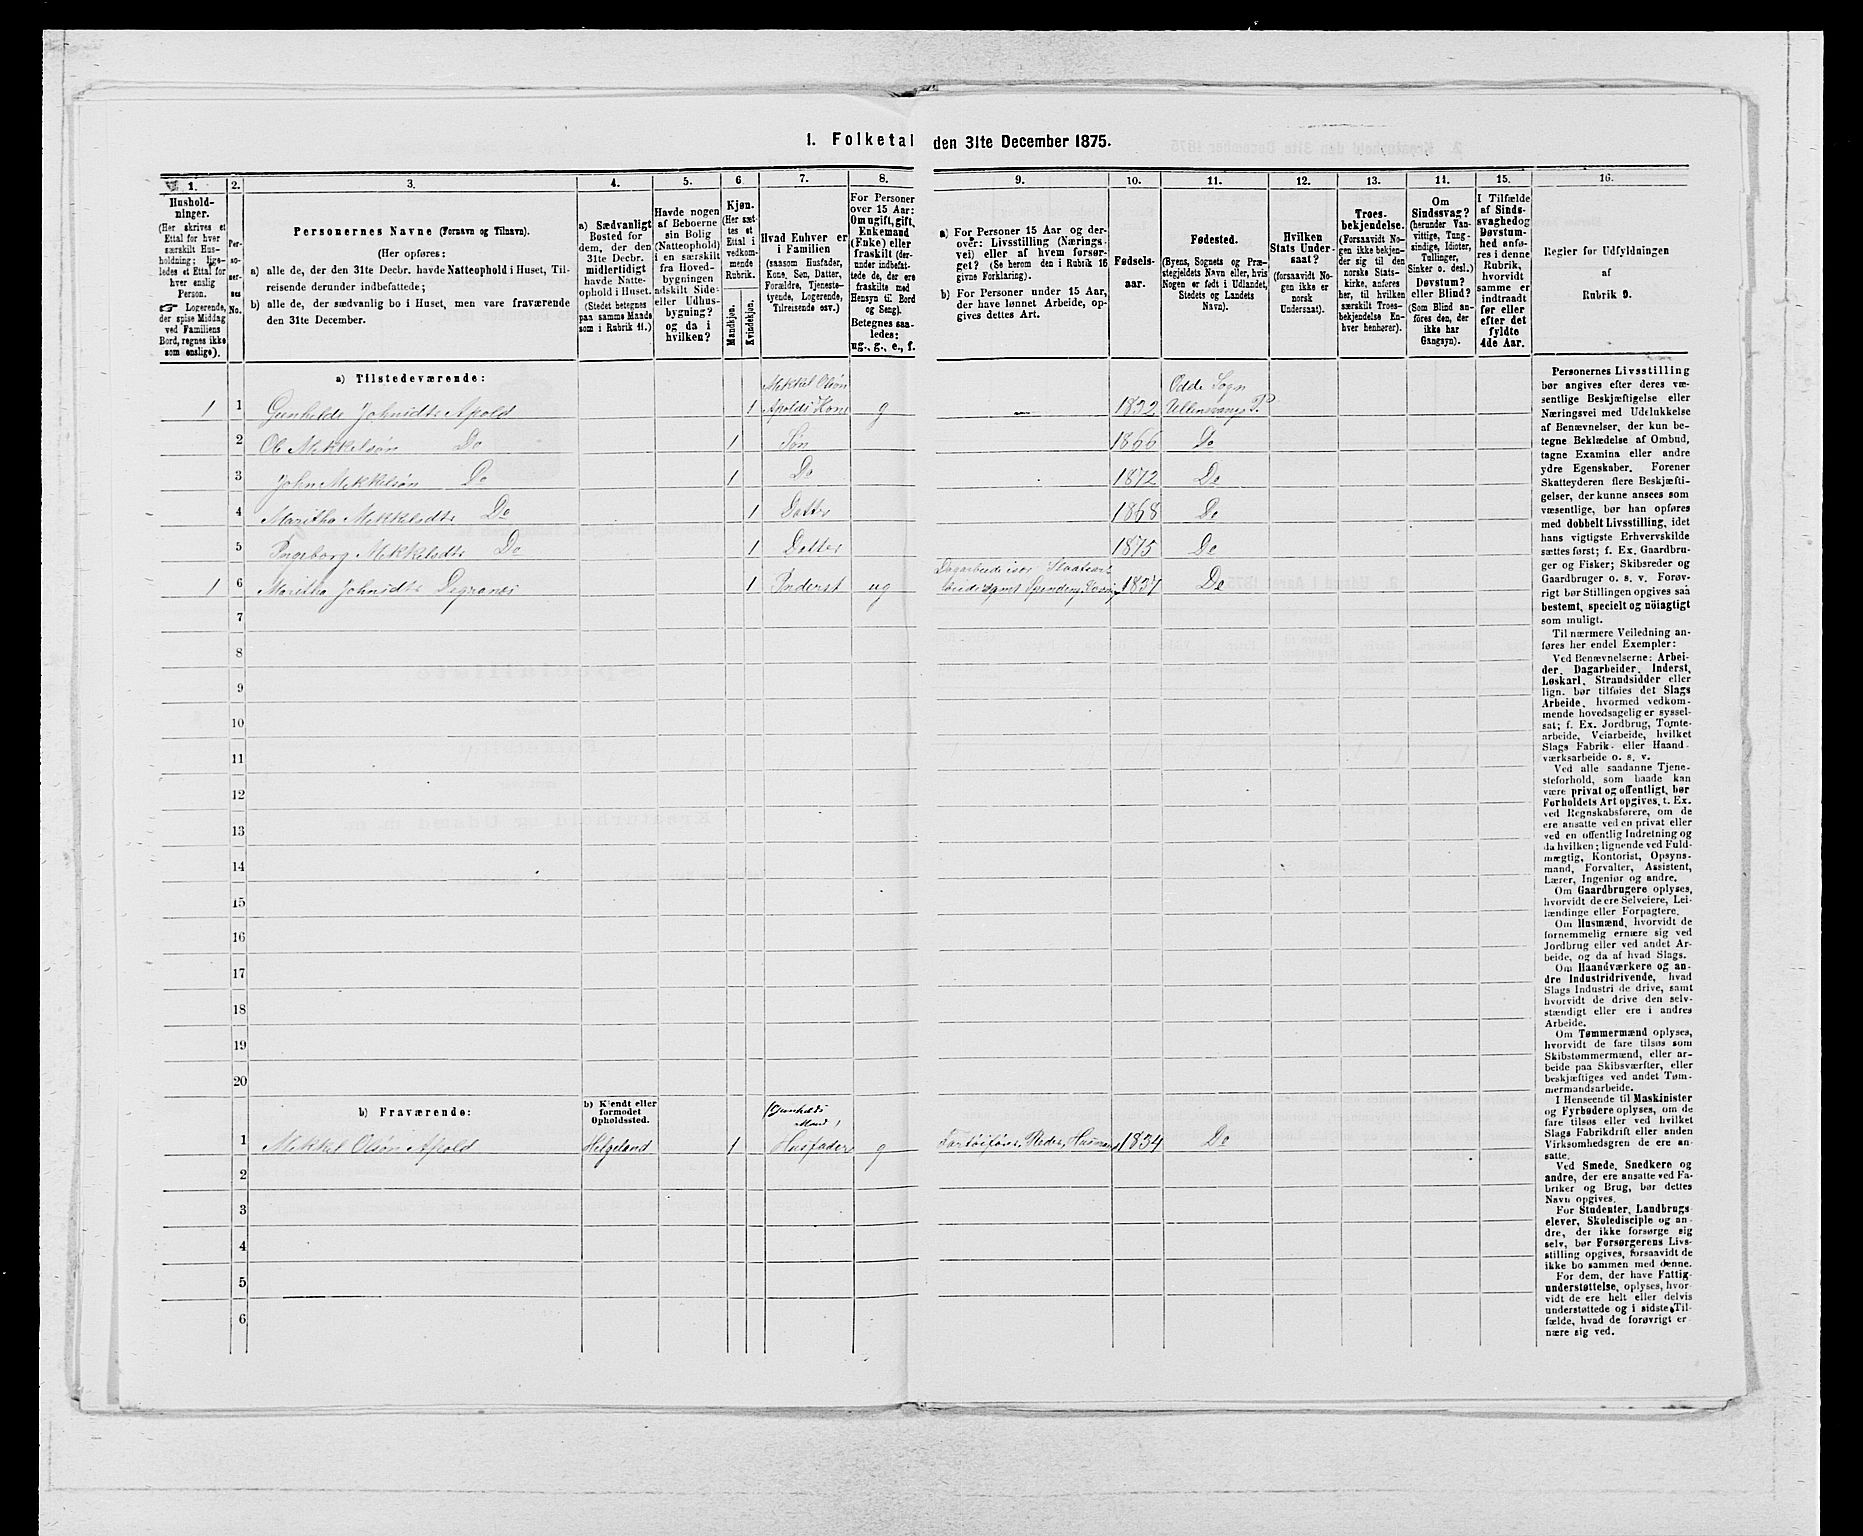 1. Folketal den 31te December 1875.
1.
Hushold-
ninger.
(Her skrives et
Ettal for hver
særskilt Hus-
holdning; lige-
ledes et Ettal for
hver enslig
Person.
☞ Logerende,
der spise Middag
ved Familiens
Bord, regnes ikke
som enslige).
2.
Per-
so-
ner-
nes
No.
3.
Personernes Navne (Fornavn og Tilnavn).
(Her opføres:
a) alle de, der den 31te Decbr. havde Natteophold i Huset, Til-
reisende derunder indbefattede;
b) alle de, der sædvanlig bo i Huset, men vare fraværende
den 31te December.
4.
a) Sædvanligt
Bosted for
dem, der den
31te Decbr.
midlertidigt
havde Natte-
ophold i Huset.
(Stedet betegnes
paa samme Maade
som i Rubrik 11.)
5.
Havde nogen
af Beboerne
sin Bolig
(Natteophold)
i en særskilt
fra Hoved-
bygningen
adskilt Side-
eller Udhus-
bygning?
og da i
hvilken?
6.
Kjøn.
(Her sæt-
tes et
Ettal i
vedkom-
mende
Rubrik.
Mandkjøn.
Kvindekjøn.
7.
Hvad Enhver er
i Familien
(saasom Husfader,
Kone, Søn, Datter,
Forældre, Tjeneste-
tyende, Logerende,
Tilreisende osv.)
8.
For Personer
over 15 Aar:
Om ugift, gift,
Enkemand
(Enke) eller
fraskilt (der-
under indbefat-
tede de, der ere
fraskilte med
Hensyn til Bord
og Seng).
Betegnes saa-
ledes:
ug., g., e., f.
9.
a) For Personer 15 Aar og der-
over: Livsstilling (Nærings-
vei) eller af hvem forsør-
get? (Se herom den i Rubrik 16
givne Forklaring).
b) For Personer under 15 Aar,
der have lønnet Arbeide, op-
gives dettes Art.
10.
Fødsels-
aar.
11.
Fødested.
(Byens, Sognets og Præ-
stegjeldets Navn eller, hvis
Nogen er født i Udlandet,
Stedets og Landets
Navn).
12.
Hvilken
Stats Under-
saat?
(forsaavidt No-
gen ikke er
norsk
Undersaat).
13.
Troes-
bekjendelse.
(Forsaavidt No-
gen ikke bekjen-
der sig til den
norske Stats-
kirke, anføres
her, til hvilken
særskilt Troes-
bekjendelse En-
hver henhører).
14.
Om
Sindssvag?
(herunder Van-
vittige, Tung-
sindige, Idioter,
Tullinger,
Sinker o. desl.)
Døvstum?
eller Blind?
(Som Blind an-
føres den, der
ikke har
Gangsyn).
15.
I Tilfælde
af Sinds-
svaghed og
Døvstum-
hed anfø-
res i denne
Rubrik,
hvorvidt
samme er
indtraadt
før eller
efter det
fyldte
4de Aar.
16.
Regler før Udfyldningen
af
Rubrik 9.
a) Tilstedeværende:
1 1 Gunhilde Johnidtr Apold 1 Mikkel Olsøn Apolds Kone g — 1832 Odde Sogn Ullensvangs P.
2 Ole Mikkelsøn Do 1 Søn 1866 Do
3 John Mikkelsøn Do 1 Do 1872 Do
4 Maritha Mikkelsdtr Do 1 Datter 1868 Do
5 Ingeborg Mikkelsdtr Do 1 Datter 1875 Do
1 6 Maritha Johnidtr Degranes 1 Inderst ug 1837 Do
7
8
9
10
11
12
13
14
15
16
17
18
19
20
b) Fraværende:
b) Kjendt eller
formodet
Opholdssted.
1 Mikkel Olsøn Apold Helgeland 1 (Gunhilds Mand) Husfader g 1834 Do
2
3
4
5
6
Personernes Livsstilling
bør angives efter deres væ-
sentlige Beskjæftigelse eller
Næringsvei med Udelukkelse
af Benævnelser, der kun be-
tegne Beklædelse af Ombud,
tagne Examina eller andre
ydre Egenskaber. Forener
Skatteyderen flere Beskjæfti-
gelser, der kunne ansees som
væsentlige, bør han opføres
med dobbelt Livsstilling, idet
hans vigtigste Erhvervskilde
sættes først; f. Ex. Gaardbru-
ger og Fisker; Skibsreder og
Gaardbruger o. s. v. Forøv-
rigt bør Stillingen opgives saa
bestemt, specielt og nöiagtigt
som muligt.
Til nærmere Veiledning an-
føres her endel Exempler:
Ved Benævnelserne: Arbei-
der, Dagarbeider, Inderst,
Løskarl, Strandsidder eller
lign. bør tilføies det Slags
Arbeide, hvormed vedkom-
mende hovedsagelig er syssel-
sat; f. Ex. Jordbrug, Tomte-
arbeide, Veiarbeide, hvilket
Slags Fabrik- eller Haand-
værksarbeide o. s. v.
Ved alle saadanne Tjene-
steforhold, som baade kan
være privat og offentligt, bør
Forholdets Art opgives, t. Ex.
ved Regnskabsførere, om de
ere ansatte ved en privat eller
ved en offentlig Indretning og
da hvilken; lignende ved Fuld-
mægtig, Kontorist, Opsyns-
mand, Forvalter, Assistent,
Lærer, Ingeniør og andre.
Om Gaardbrugere oplyses,
hvorvidt de ere Selveiere, Lei-
lændinge eller Forpagtere.
Om Husmænd, hvorvidt de
fornemmelig ernære sig ved
Jordbrug eller ved andet Ar-
beide, og da af hvad Slags.
Om Haandværkere og an-
dre Industridrivende, hvad
Slags Industri de drive, samt
hvorvidt de drive den selv-
stændigt eller ere i andres
Arbeide.
Om Tømmermænd oplyses,
hvorvidt de fare tilsøs som
Skibstømmermænd, eller ar-
beide paa Skibsværfter, eller
beskjæftiges ved andet Tøm-
mermandsarbeide.
I Henseende til Maskinister
og Fyrbødere oplyses, om de
fare tilsøs eller ved hvilket
Slags Fabrikdrift eller anden
Virksomhedsgren de ere an-
satte.
Ved Smede, Snedkere og
andre, der ere ansatte ved Fa-
briker og Brug, bør dettes
Navn opgives.
For Studenter, Landbrugs-
elever, Skoledisciple og an-
dre, der ikke forsørge sig
selv, bør Forsørgerens Livs-
stilling opgives, forsaavidt de
ikke bo sammen med denne.
For dem, der have Fattig-
understøttelse, oplyses, hvor-
vidt de ere helt eller delvis
understøttede og i sidste Til-
fælde, hvad de forøvrigt er-
nære sig ved.